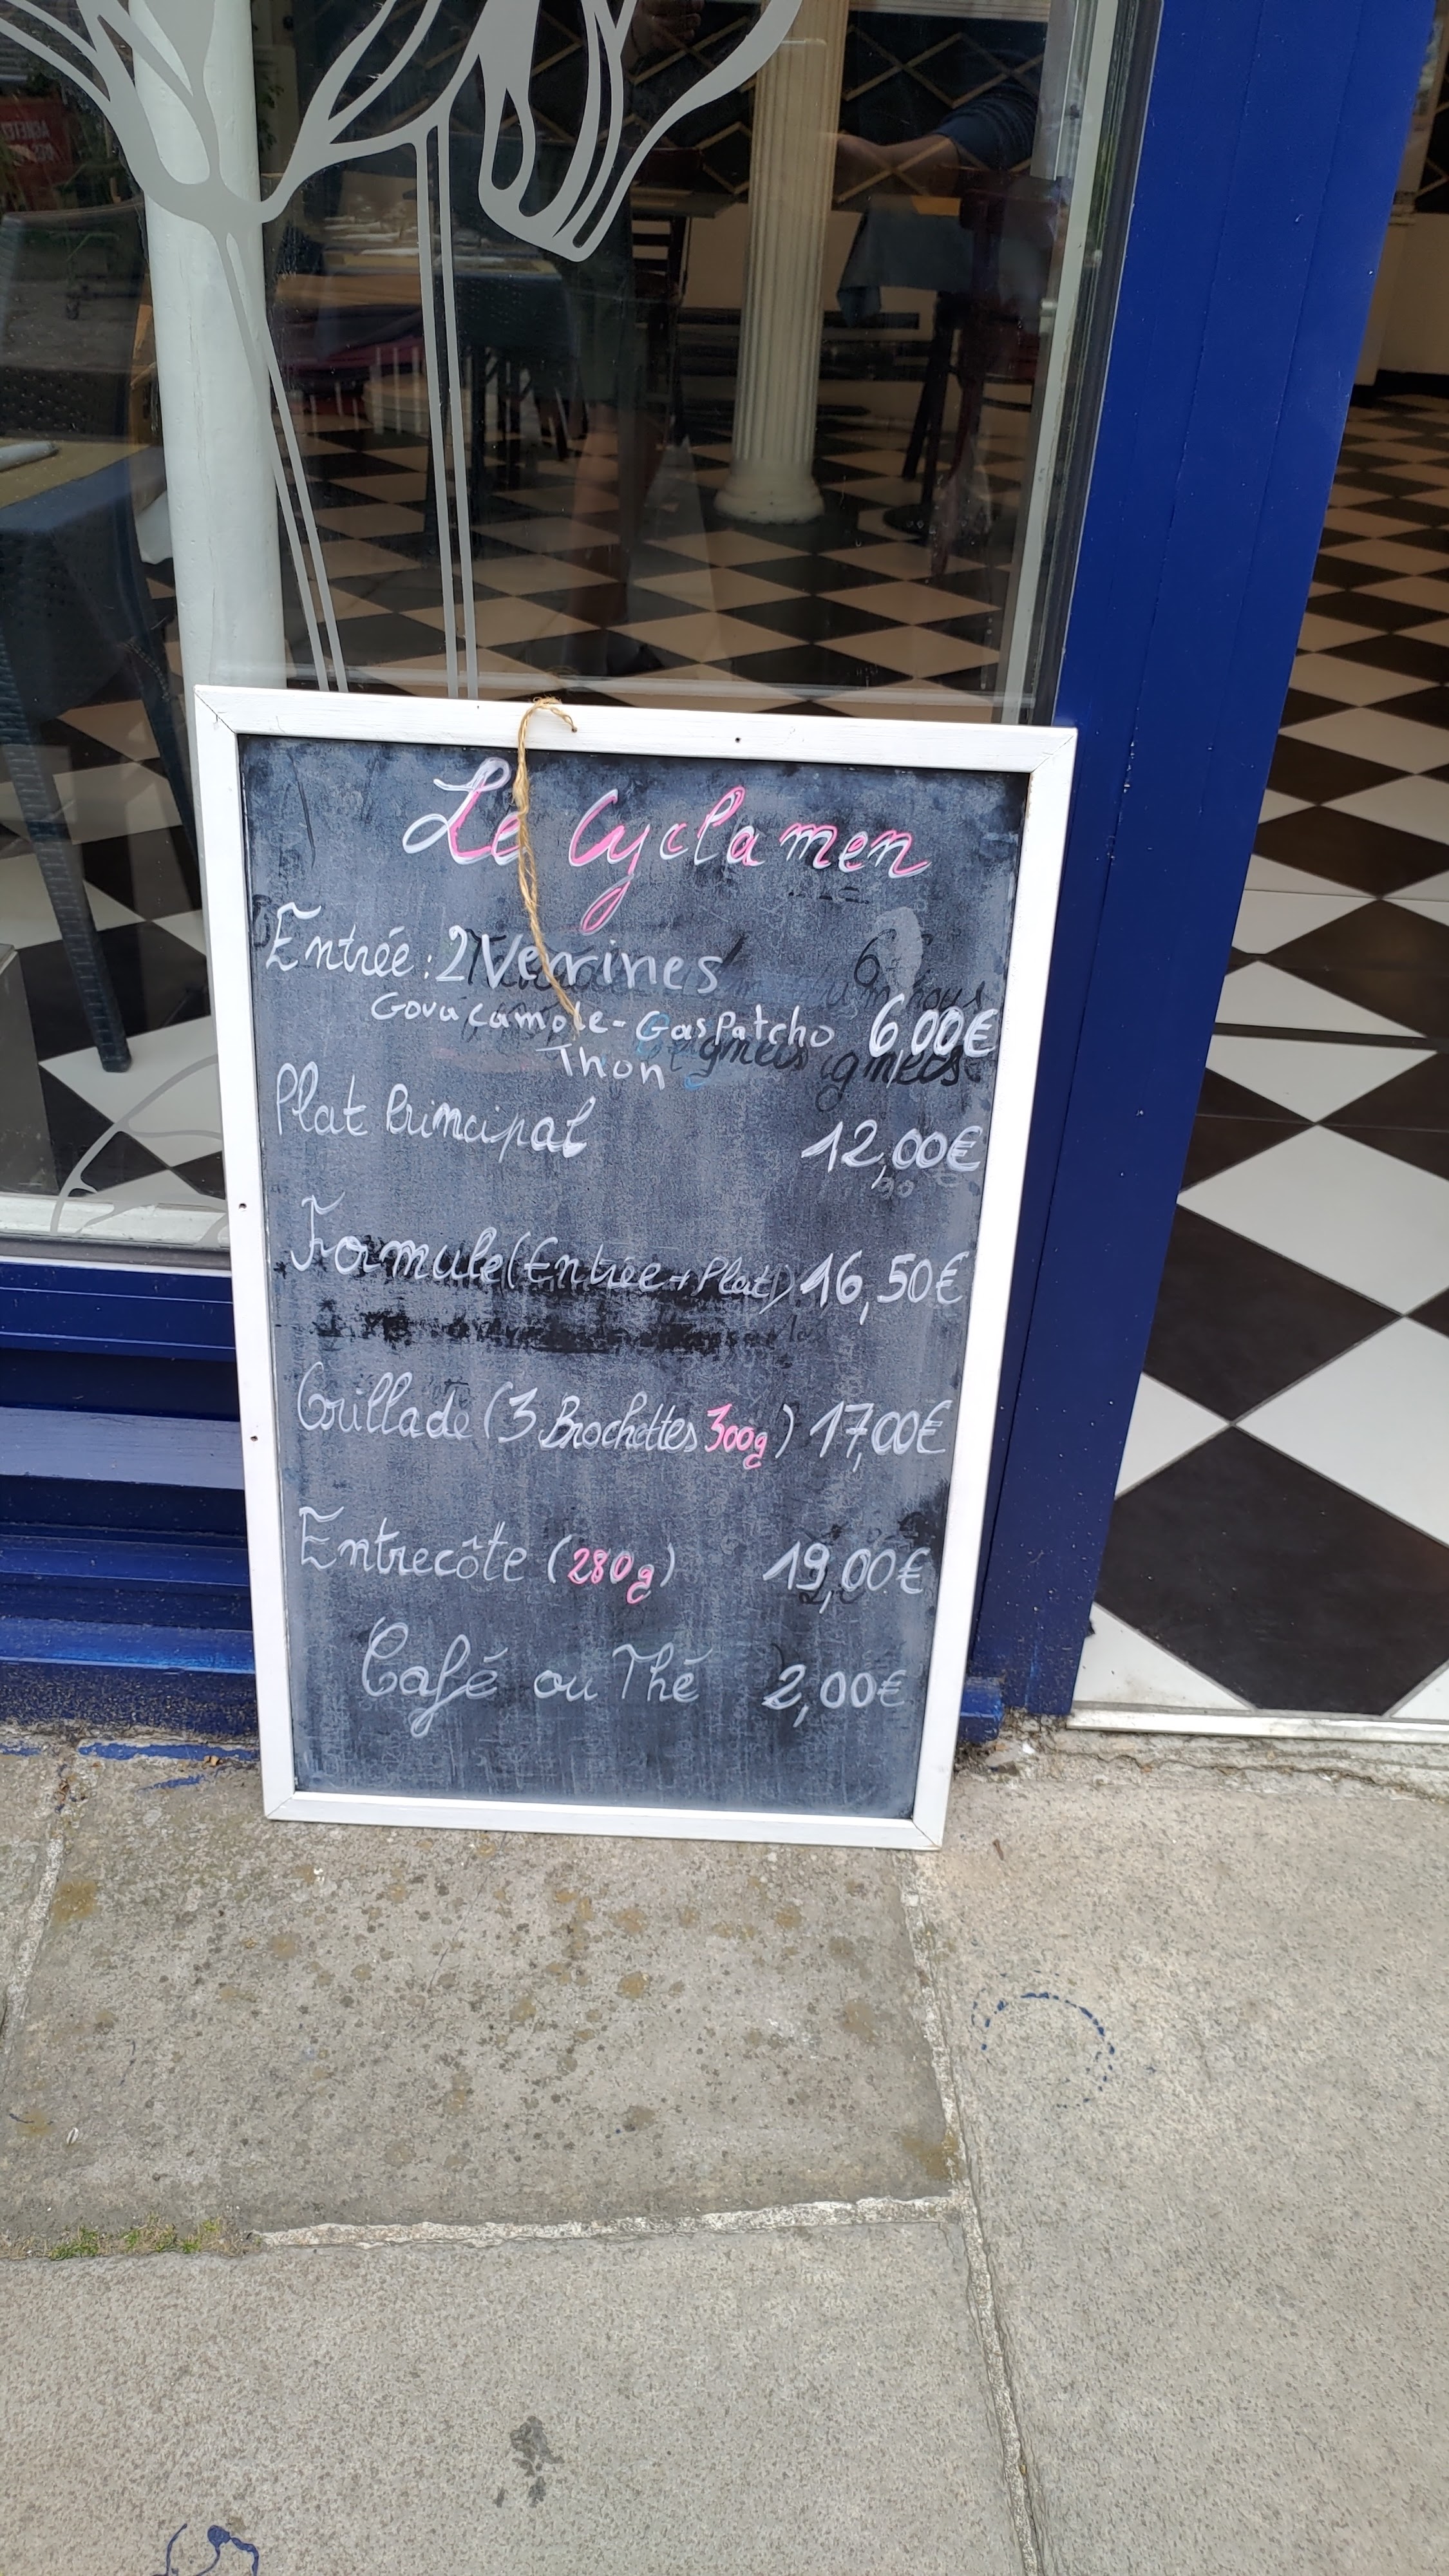 Le Cyclamen
Entrée : 2 Verrines
Govacamole - Gaspatcho 6,00€
Thon
Plat Principal 12,00€
Formule (Entrée + Plat) 16,50€
Grillade (3 Brochettes 300g) 17,00€
Entrecôte (280g) 19,00€
Café ou Thé 2,00€